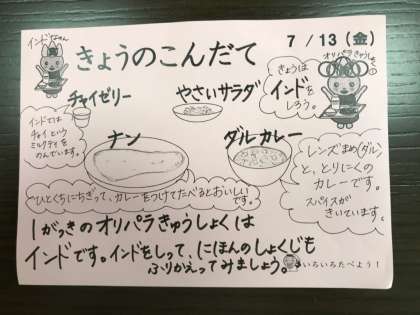 インド
きょうのこんだて
7/13(金)
オリパラきゅうしょく
きょうは
インドを
しろう。
チャイゼリー
やさいサラダ
インドでは
チャイという
ミルクティを
のんでいます。
ナン
ダルカレー
レンズまめ(ダル)
と、とりにくの
カレーです。
スパイスが
きいています。
ひとくちにちぎって、カレーをつけてたべるとおいしい
です。
1がっきのオリパラきゅうしょくは
インドです。インドをしって、にほんのしょくじも
ふりかえってみましょう。
いろいろたべよう!